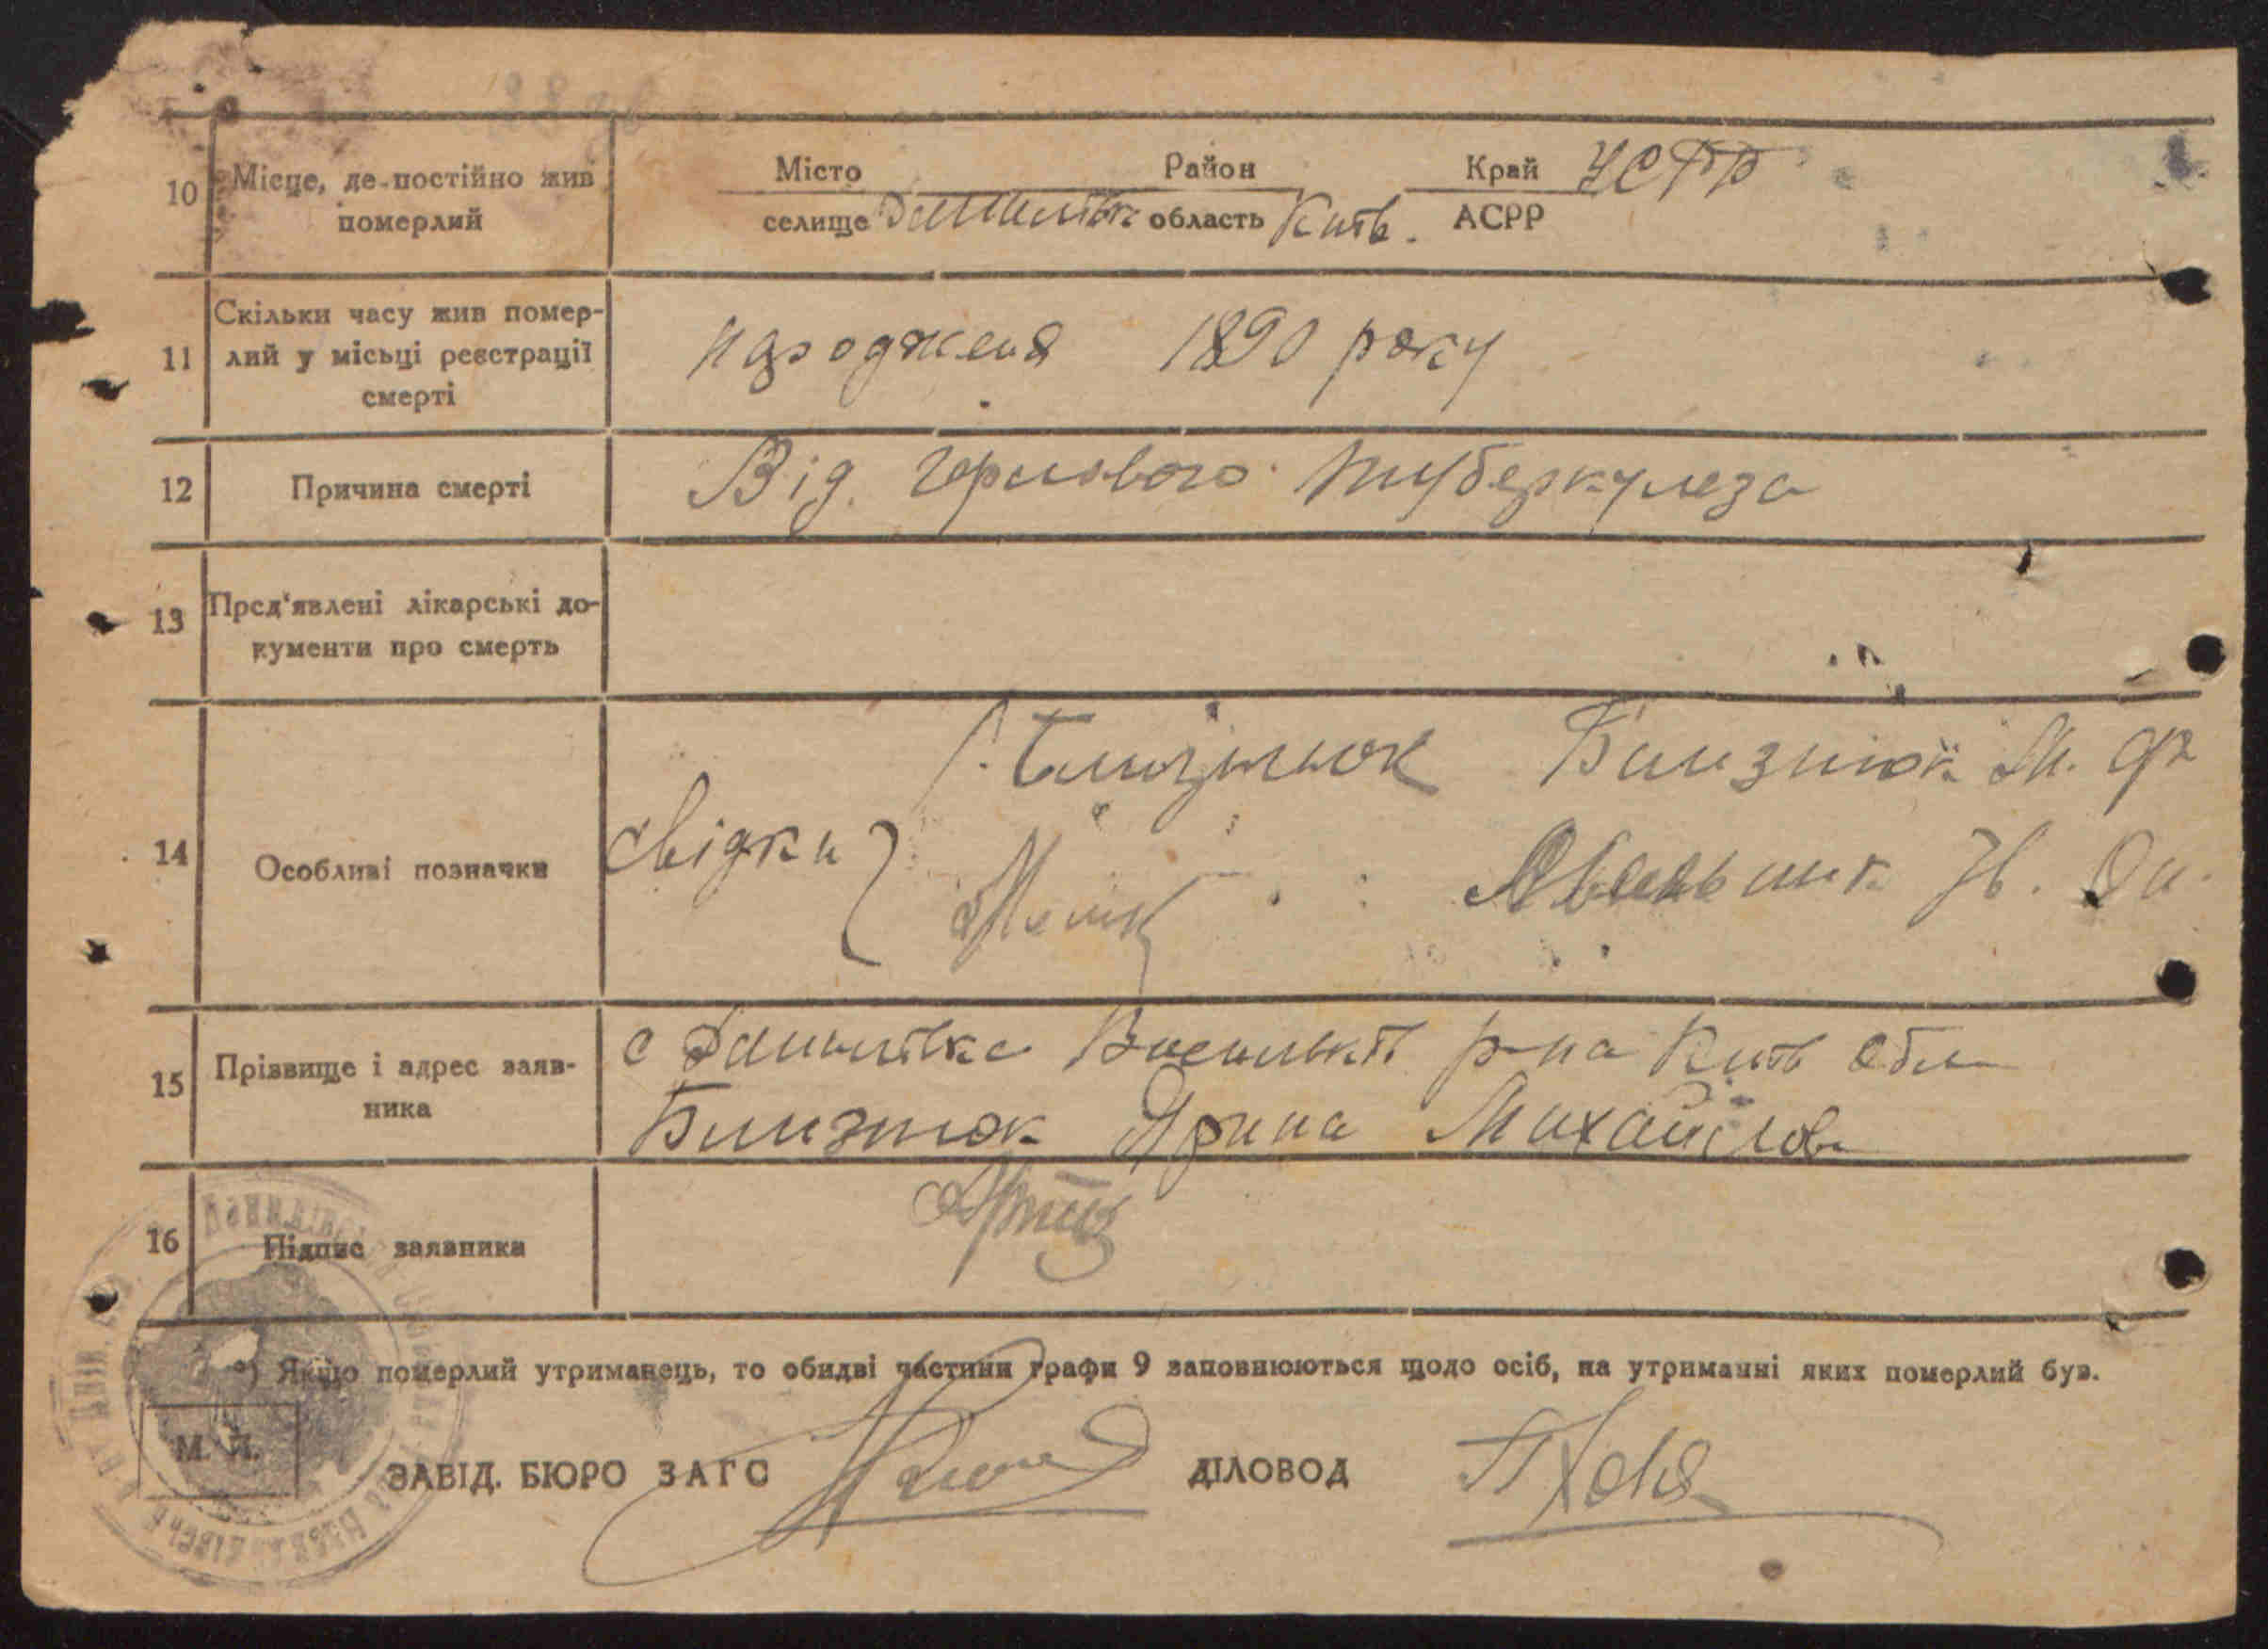 10 Місце, де постійно жив померлий
Місто Район Край УСРР
селище Данилівк область Київ. АСРР
11 Скільки часу жив помер-
лий у місьці реєстрації
смерті
народженя 1890 року
12 Причина смерті
Від. горлового туберкулеза
13 Пред'явлені лікарські до-
кументи про смерть
14 Особливі позначки
свідки Близнюк Близнюк М.
15 Прізвище і адрес заяв-
ника
с Данилівка Васильків р-на Київ Обл
Близнюк Ярина Михайлов
16 Підпис заявника
*) Якщо померлий утриманець, то обидві частини графи 9 заповнюються щодо осіб, на утриманні яких померлий був.
М. П.
ЗАВІД. БЮРО ЗАГС ДІЛОВОД